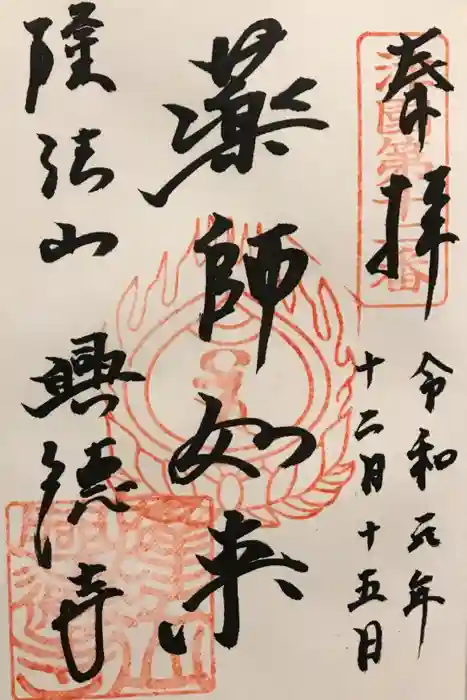 奉拝
令和元年
十二月十五日
薬師如来
隆法山 興徳寺